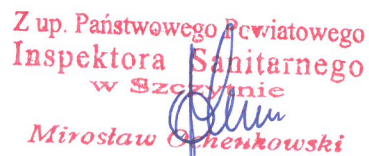 Z up. Państwowego Powiatowego
Inspektora Sanitarnego
w Szczytnie
Mirosław Ochenkowski